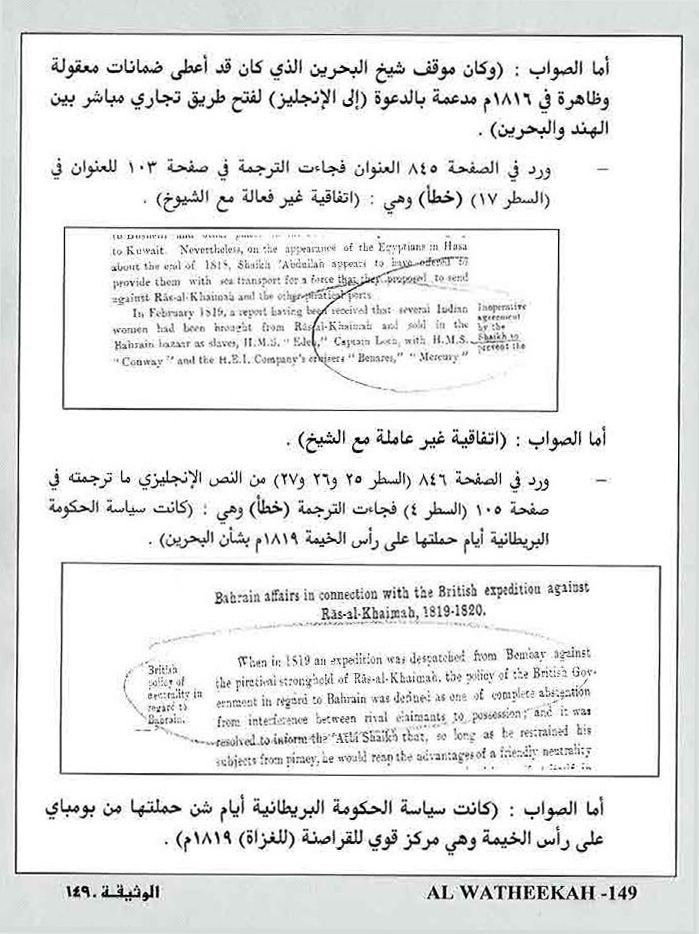 أما الصواب : (وكان موقف شيخ البحرين الذي كان قد أعطى ضمانات معقولة
وظاهرة في ١٨١٦م مدعمة بالدعوة (إلى الإنجليز) لفتح طريق تجاري مباشر بين
الهند والبحرين) .
– ورد في الصفحة ٨٤٥ العنوان فجاءت الترجمة في صفحة ١٠٣ للعنوان في
(السطر ١٧) (خطأ) وهي : (اتفاقية غير فعالة مع الشيوخ) .
to Kuwait. Nevertheless, on the appearance of the Egyptians in Hasa
about the end of 1818, Shaikh 'Abdullah appears to have offered to
provide them with sea transport for a force that they proposed to send
against Rās-al-Khaimah and the other piratical ports
In February 1819, a report having been received that several Indian
women had been brought from Rās-al-Khaimah and sold in the
Bahrain bazaar as slaves, H.M.S. "Eden," Captain Loch, with H.M.S.
"Conway" and the H.E.I. Company's cruisers "Benares," "Mercury"
Inoperative
agreement
by the
Shaikh to
prevent the
أما الصواب : (اتفاقية غير عاملة مع الشيخ) .
– ورد في الصفحة ٨٤٦ (السطر ٢٥ و٢٦ و٢٧) من النص الإنجليزي ما ترجمته في
صفحة ١٠٥ (السطر ٤) فجاءت الترجمة (خطأ) وهي : (كانت سياسة الحكومة
البريطانية أيام حملتها على رأس الخيمة ١٨١٩م بشأن البحرين) .
Bahrain affairs in connection with the British expedition against
Rās-al-Khaimah, 1819-1820.
British
policy of
neutrality in
regard to
Bahrain.
When in 1819 an expedition was despatched from Bombay against
the piratical stronghold of Rās-al-Khaimah, the policy of the British Gov-
ernment in regard to Bahrain was defined as one of complete abstention
from interference between rival claimants to possession; and it was
resolved to inform the 'Atbi Shaikh that, so long as he restrained his
subjects from piracy, he would reap the advantages of a friendly neutrality
أما الصواب : (كانت سياسة الحكومة البريطانية أيام شن حملتها من بومباي
على رأس الخيمة وهي مركز قوي للقراصنة (للغزاة) ١٨١٩م) .
الوثيقة - ١٤٩
AL WATHEEKAH -149